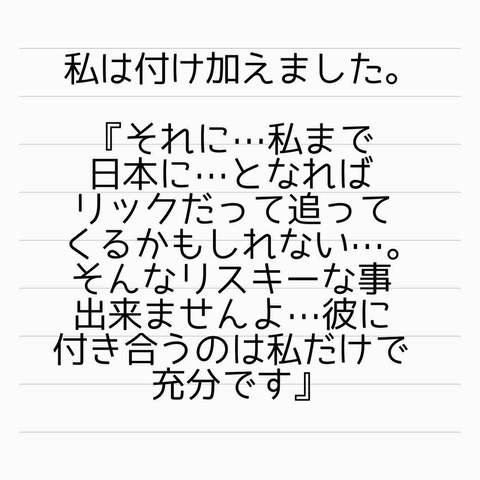 私は付け加えました。
『それに…私まで
日本に…となれば
リックだって追って
くるかもしれない…。
そんなリスキーな事
出来ませんよ…彼に
付き合うのは私だけで
充分です』